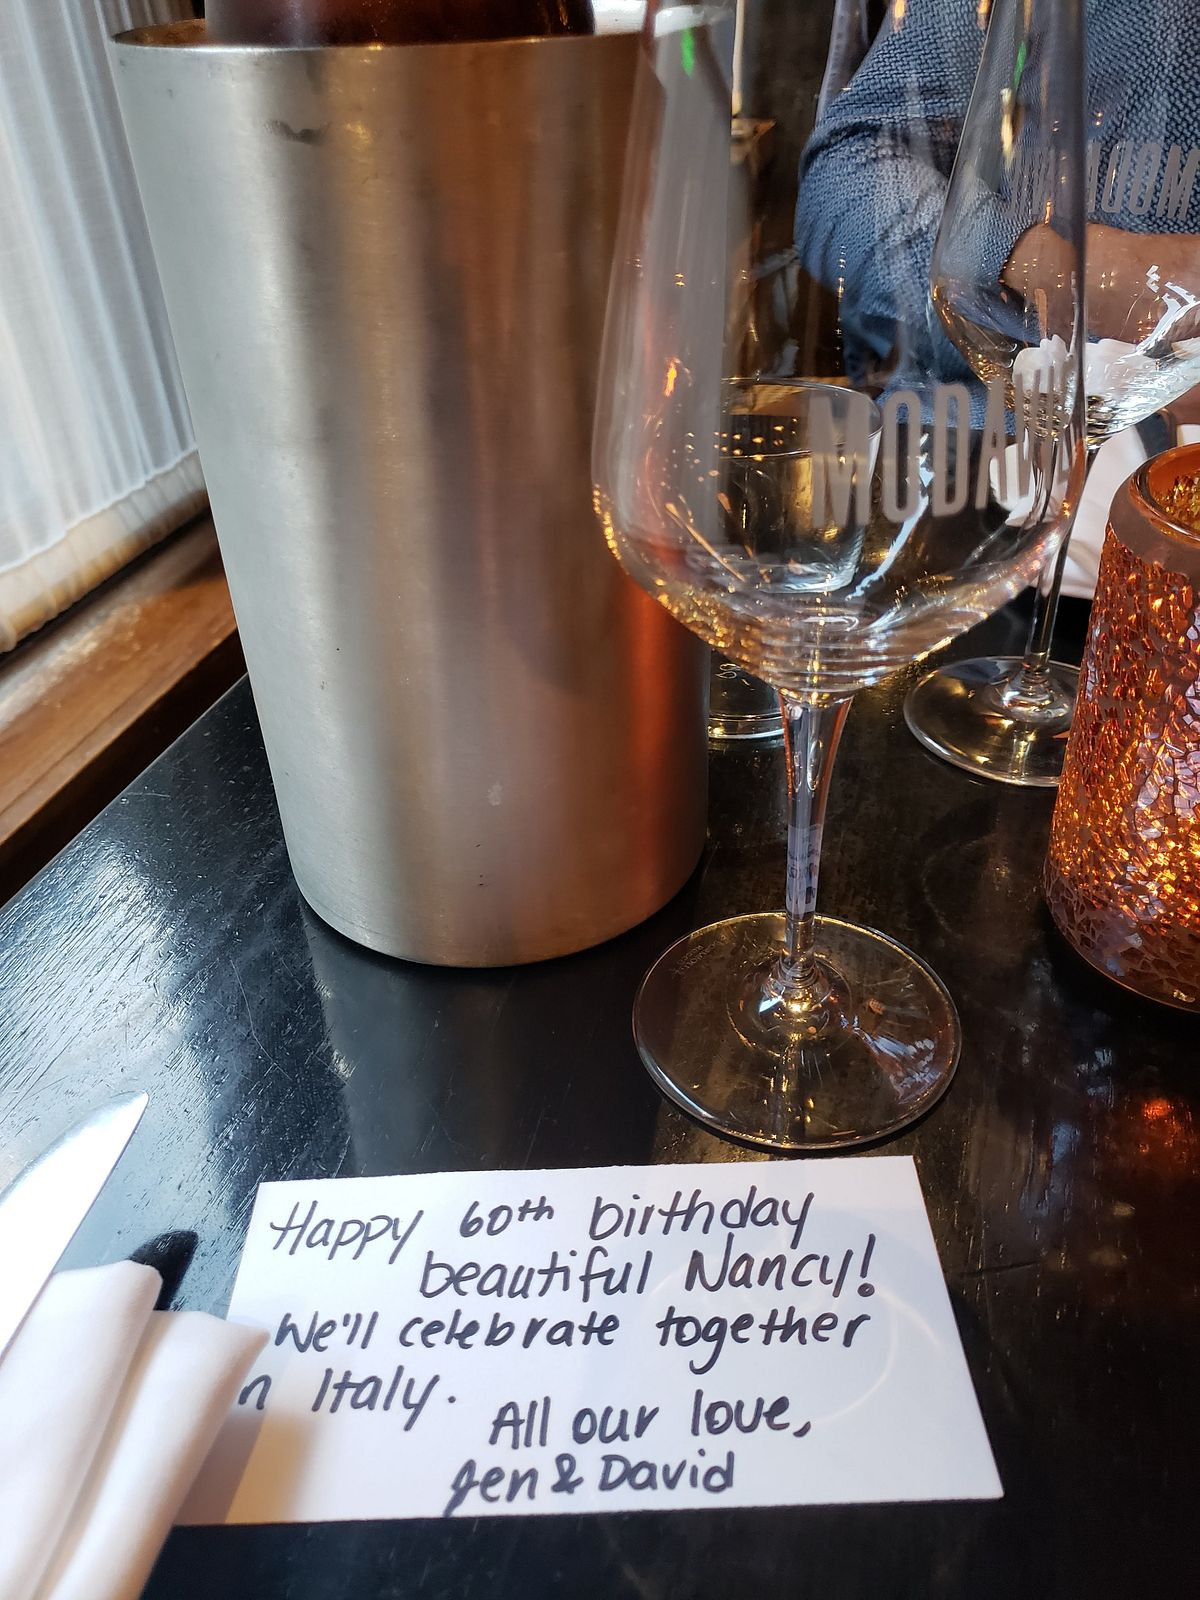 MODAVIE
Happy 60th birthday
beautiful Nancy!
We'll celebrate together
n Italy.
All our love,
Jen & David